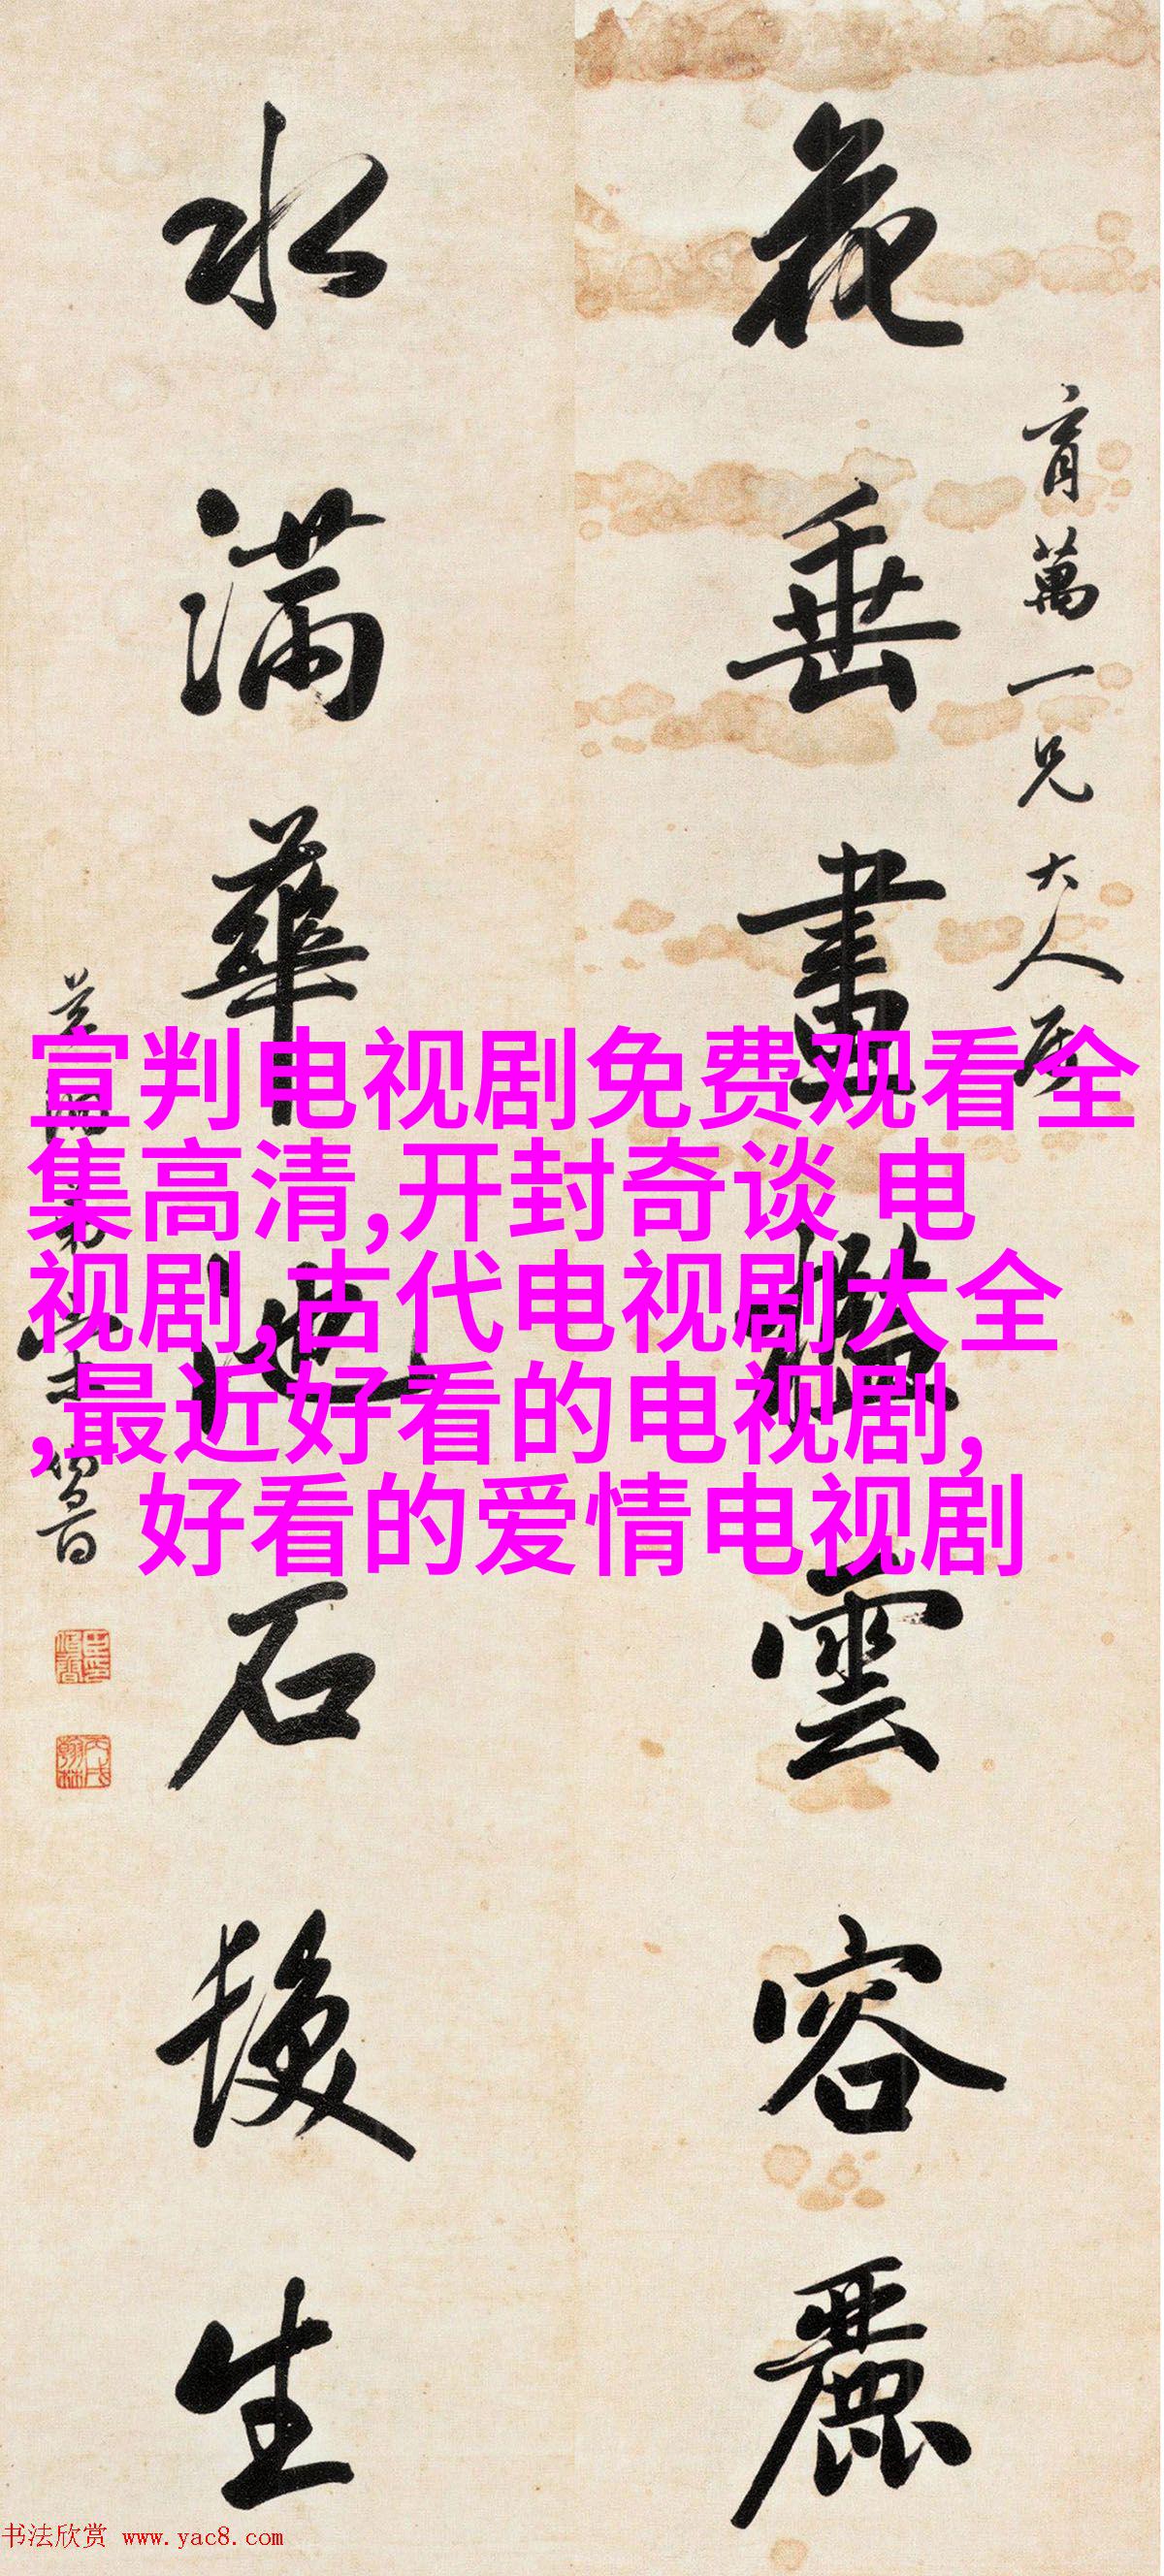 花垂畫檻雲容麗
育萬一兄大人属
水满華池石髮生
宣判电视剧免费观看全
集高清,开封奇谈 电
视剧,古代电视剧大全
,最近好看的电视剧,
好看的爱情电视剧
书法欣赏 www.yac8.com